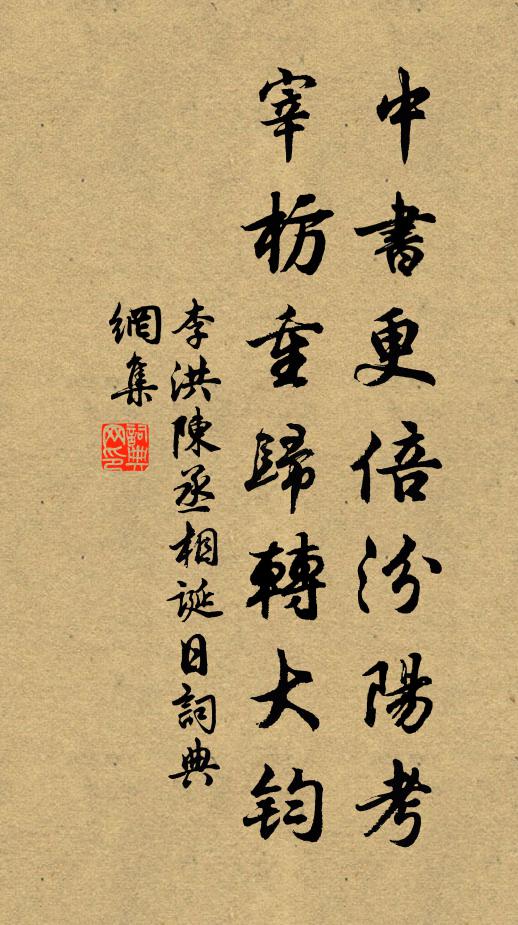 中書更倍汾陽考
宰枋重歸轉大鈞
李洪陳丞相誕日詞典
網集
詞典网印